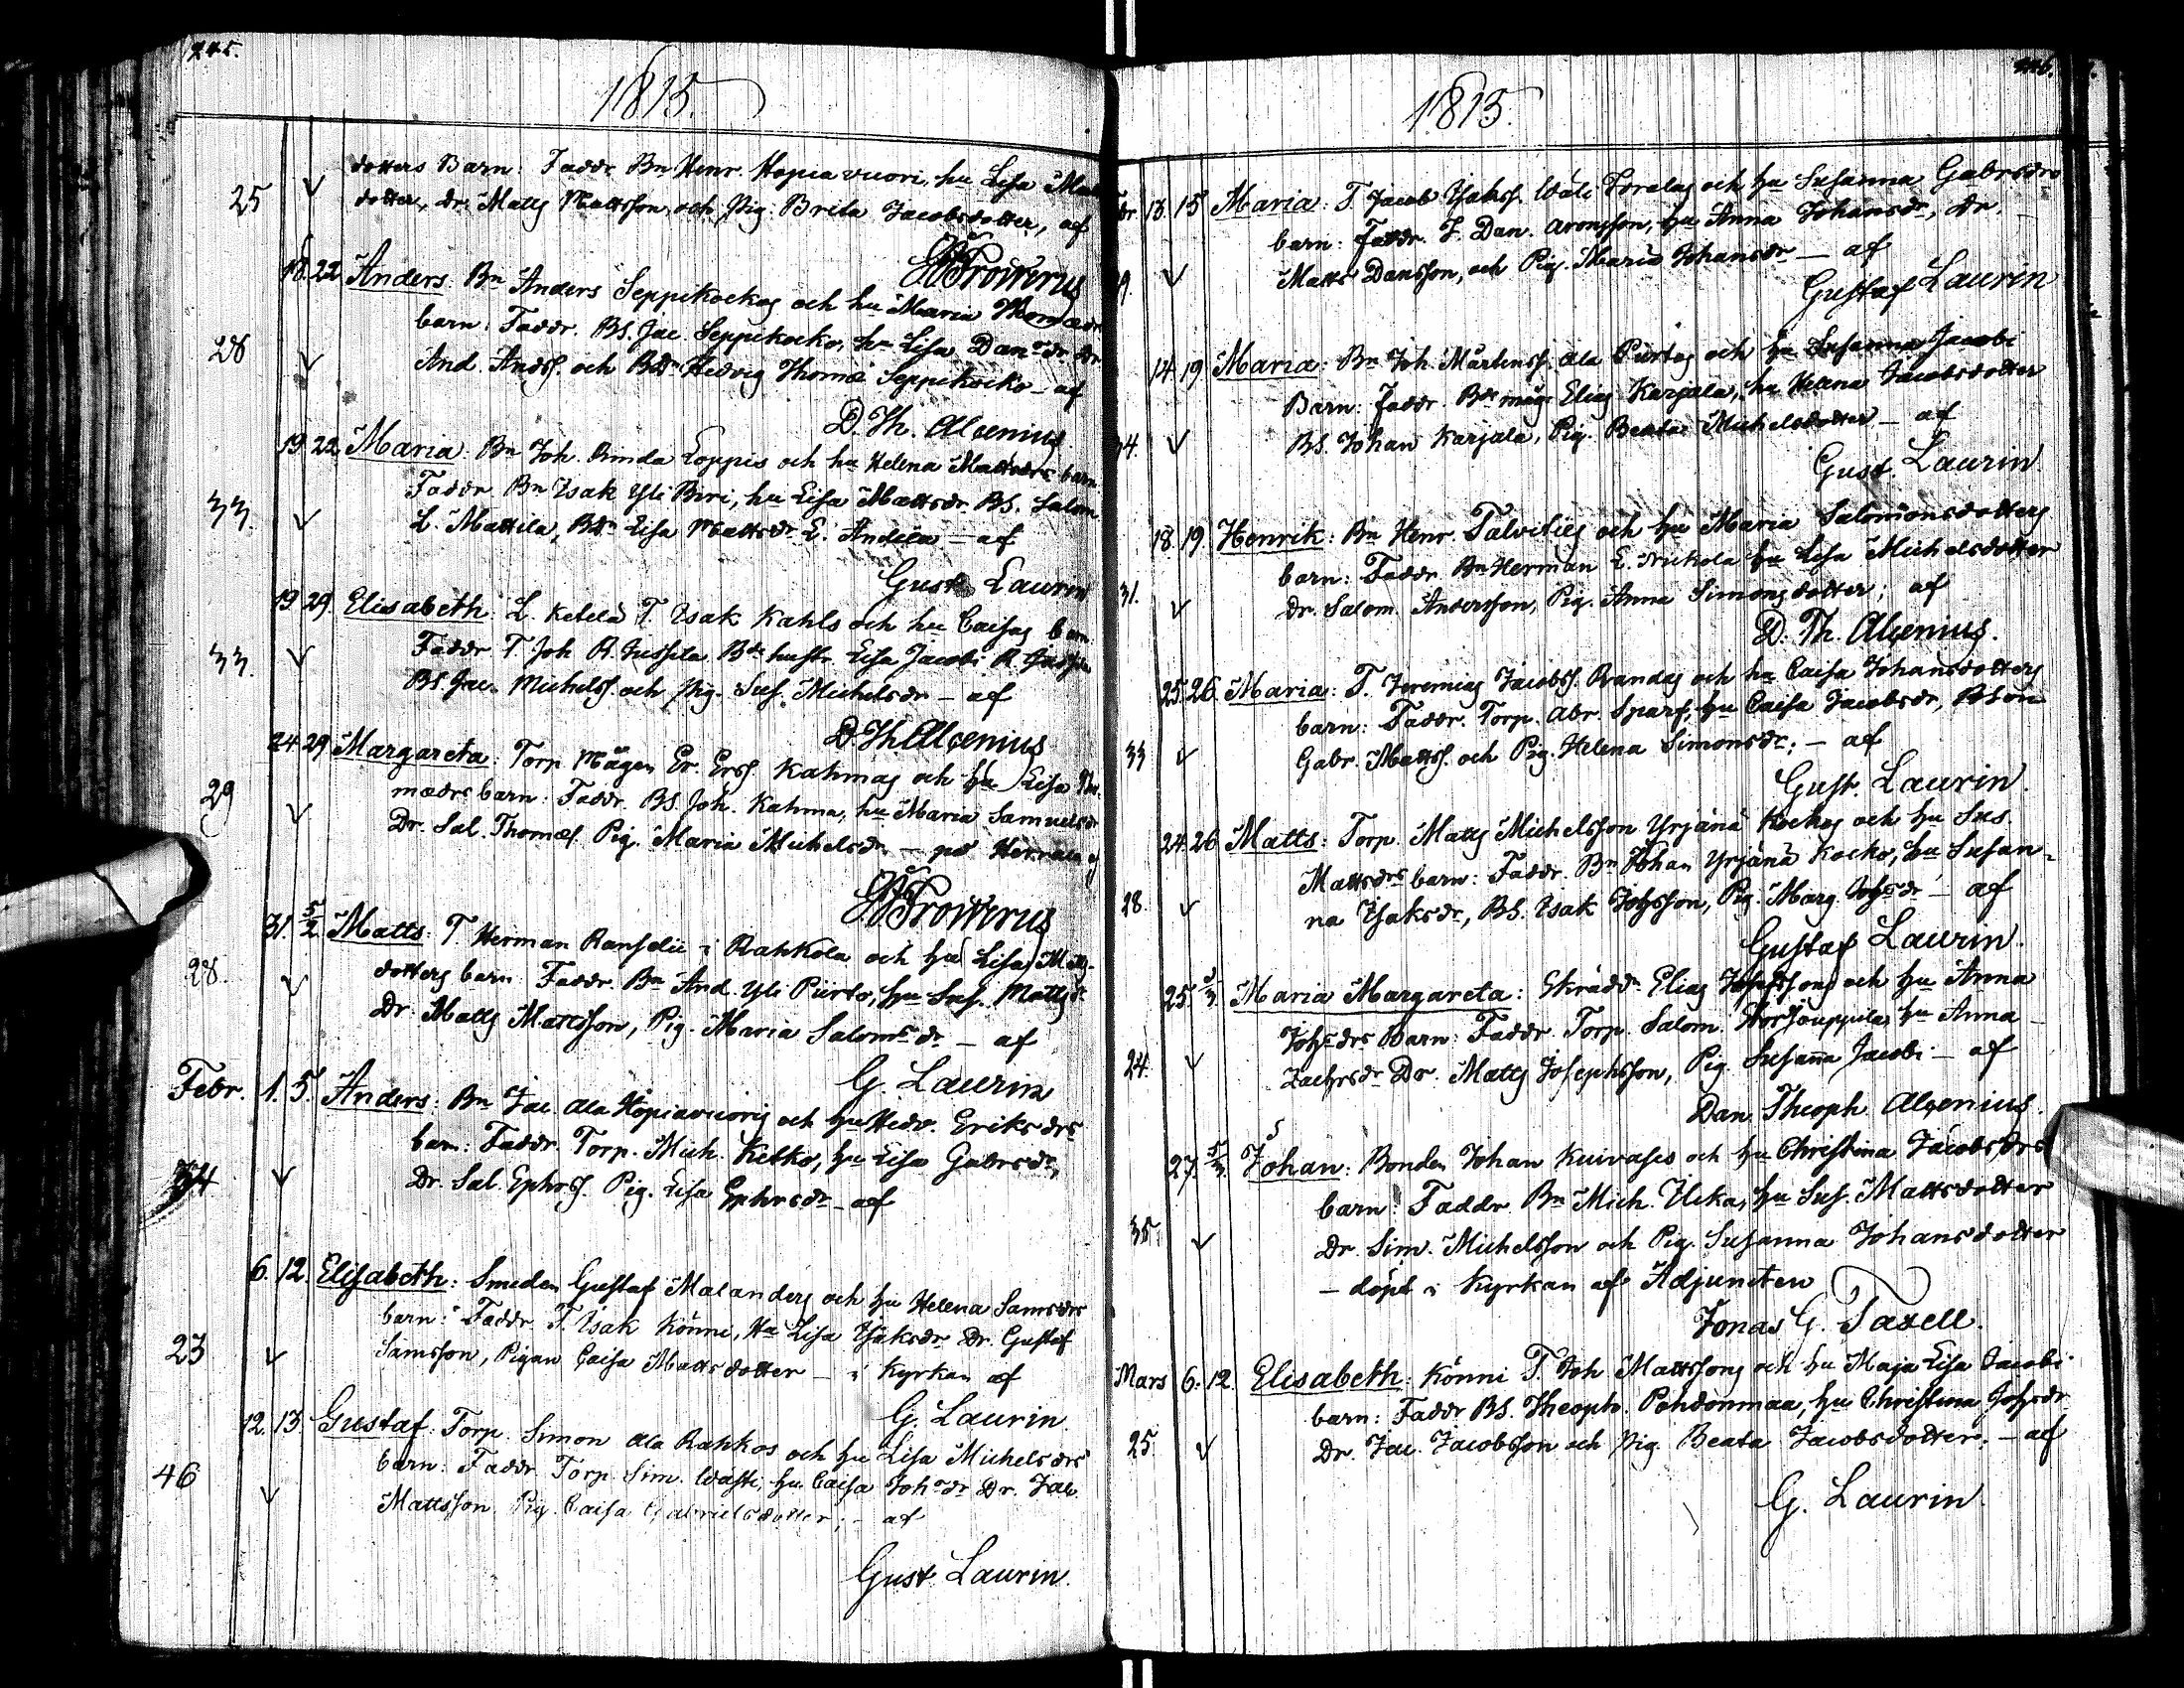 245.
1815.
dotters Barn: Faddr. Bn Henr. Hopiavuori, hu Lisa Matts
25 dotter, Dr. Matts Mattsson, och Pig. Brita Jacobsdotter, af
18. 22. Anders: Bn Anders Seppikockos och hu Maria Thomædrs
barn: Faddr. BS. Jac. Seppikocko, hu Lisa Dansdr Dr
28 And. Andss. och BDr Hedvig Thomæ Seppikocko - af
D. Th. Algenius
19. 22. Maria: Bn Joh. Rinda Loppis och hu Helena Mattsdrs barn:
Faddr. Bn Isak Yli Biri, hu Lisa Mattsdr BS. Salom
33. L. Mattila, BDr Lisa Mattsdr L. Andila - af
Gust. Laurin
19 29. Elisabeth: L. Ketela T. Isak Kahls och hu Caisas barn:
Faddr. T. Joh R. Jussila Bds hustr. Lisa Jacobi R. Jussila
33. BS. Jac. Michelss. och Pig. Sus. Michelsdr - af
D. Th. Algenius
24 29 Margareta: Torp. Mågen Er. Erss. Kahmas och hu Lisa Tho-
mædrs barn: Faddr. BS. Joh. Kahma, hu Maria Samuelsdr
29 Dr. Sal. Thomæs. Pig. Maria Michelsdr. - på Herrala af
31. 5/2 Matts: T. Herman Ranselii i Rahkola och hu Lisa Matts-
dotters barn: Faddr. Bn And. Yli Purto, hu Sus. Mattsdr
28. Dr. Matts Mattsson, Pig. Maria Salomsdr - af
G. Laurin
Febr. 1. 5. Anders: Bn Jac. Ala Hopiavuoris och hu Hedv. Eriksdrs
barn: Faddr. Torp. Mich. Ketko, hu Lisa Gabrsdr,
34 Dr. Sal. Ephrss. Pig. Lisa Ephrsdr - af
6. 12. Elisabeth: Smeden Gustaf Malanders och hu Helena Samsdrs
barn: Faddr. T. Isak Könni, Hu Lisa Isaksdr Dr. Gustaf
23 Samsson, Pigan Caisa Mattsdotter - i Kyrkan af
G. Laurin.
12. 13. Gustaf: Torp. Simon Ala Rahkos och hu Lisa Michelsdrs
barn: Faddr. Torp. Sim. Wästi, hu Caisa Johsdr Dr. Jac.
46 Mattsson Pig. Caisa Gabrielsdotter; - af
Gust. Laurin.
1815.
Fbr. 13. 15 Maria: T. Jacob Isakss. Wäli Toralas och hu Susanna Gabrsdrs
barn: Faddr. T. Dan. Aronsson, hu Anna Johansdr, Dr.
Matts Dansson, och Pig. Maria Johansdr - af
Gustaf Laurin
14. 19 Maria: Bn Joh. Mårtenss. Ala Purtos och hu Susanna Jacobi
Barn: Faddr. Bds måg Elias Karjala, hu Helena Jacobsdotter
34. BS. Johan Karjala, Pig. Beata Michelsdotter - af
Gust. Laurin
18. 19. Henrik: Bn Henr. Talvities och hu Maria Salomonsdotters
barn: Faddr. Bn Herman L. Nickola hu Lisa Michelsdotter
31. Dr. Salom. Andersson, Pig. Anna Simonsdotter; af
D. Th. Algenius.
25. 26. Maria: T. Jeremias Jacobss. Randas och hu Caisa Johansdotters
barn: Faddr. Torp. Abr. Sparf, hu Caisa Jacobsdr, BSon
33 Gabr. Mattss. och Pig. Helena Simonsdr; - af
Gust. Laurin.
24. 26 Matts: Torp. Matts Michelsson Yrjänä Kockos och hu Sus.
Mattsdrs barn: Faddr. Bn Johan Yrjänä Kocko, hu Susan-
28. na Isaksdr, BS. Isak Johsson, Pig. Marg. Johsdr - af
Gustaf Laurin.
25. 5/3. Maria Margareta: Skräddr Elias Josephssons och hu Anna
Johsdrs Barn: Faddr. Torp. Salom. Storjouppila, hu Anna
24. Zachrsdr Dr. Matts Josephsson, Pig. Susanna Jacobi - af
Dan. Theoph. Algenius.
27. 5/3. Johan: Bonden Johan Kuivases och hu Christina Jacobsdrs
barn: Faddr. Bn Mich. Ucka, hu Sus. Mattsdotter
35. Dr. Sim. Michelsson och Pig. Susanna Johansdotter
- döpt i Kyrkan af Adjuncten
Jonas G. Taxell.
Mars 6. 12. Elisabeth: Könni T. Joh Mattssons och hu Maja Lisa Jacobi
barn: Faddr. BS. Theoph. Pohdonmaa, hu Christina Johsdr
25. Dr. Jac. Jacobsson och Pig. Beata Jacobsdotter; - af
G. Laurin.